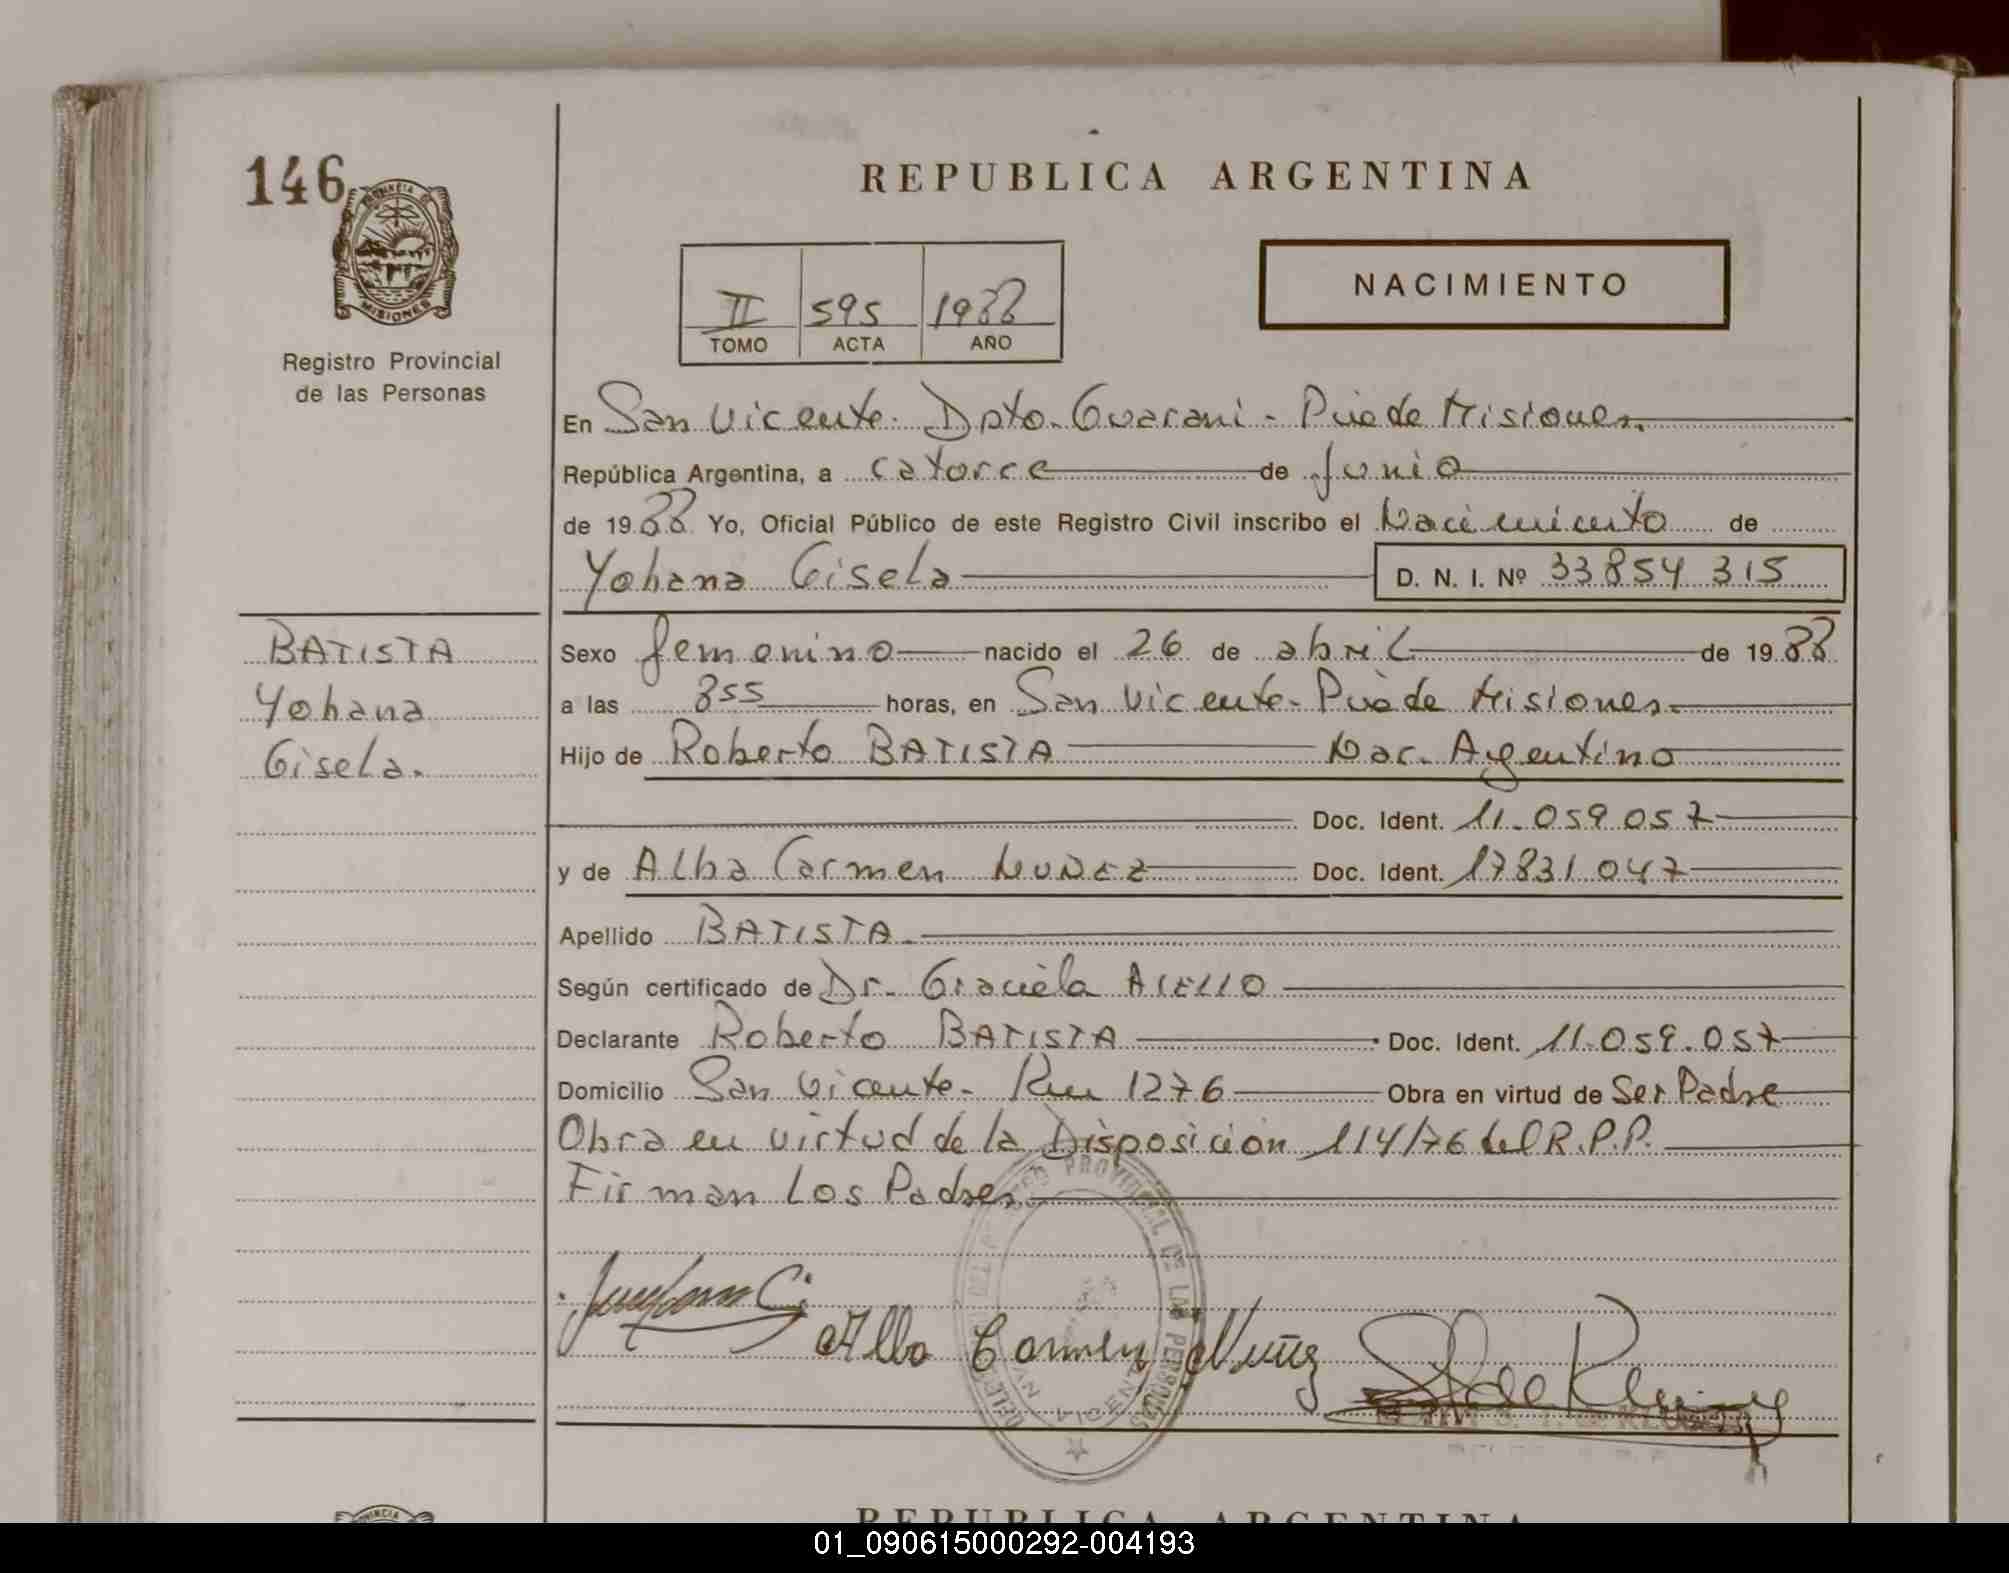 146
PROVINCIA DE
MISIONES
Registro Provincial
de las Personas
REPUBLICA ARGENTINA
II 595 1988
TOMO ACTA AÑO
NACIMIENTO
En San Vicente. Dpto. Guarani - Pcia de Misiones.
República Argentina, a catorce de Junio
de 1988 Yo, Oficial Público de este Registro Civil inscribo el Nacimiento de
Yohana Gisela D. N. I. Nº 33854 315
BATISTA
Yohana
Gisela.
Sexo femenino nacido el 26 de abril de 1988
a las 855 horas, en San Vicente - Pcia de Misiones.
Hijo de Roberto BATISTA Nac. Argentino
Doc. Ident. 11.059.057
y de Alba Carmen NUÑEZ Doc. Ident. 17831 047
Apellido BATISTA
Según certificado de Dr. Graciela AIELLO
Declarante Roberto BATISTA Doc. Ident. 11.059.057
Domicilio San Vicente - Km 1276 Obra en virtud de Ser Padre
Obra en virtud de la Disposición 114/76 del R.P.P.
Firman Los Padres.
PROVINCIAL DE LAS PERSONAS
VICENTE
Alba Carmen Nuñez
PROVINCIA
REPUBLICA ARGENTINA
01_090615000292-004193